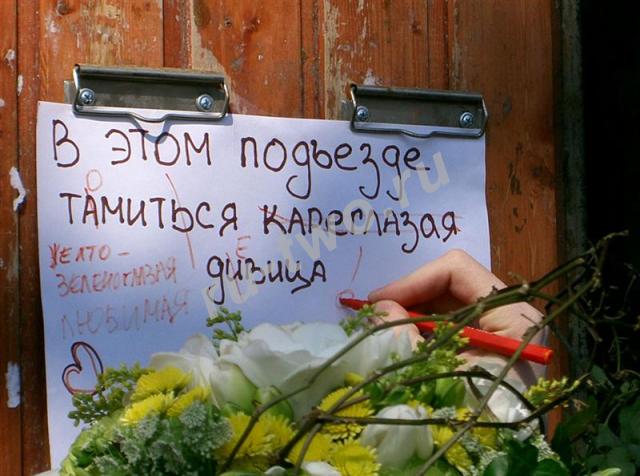 В ЭТОМ ПОДЬЕЗДЕ
О
ТАМИТЬСЯ КАРЕГЛАЗАЯ
Е
ДИВИЦА
ЖЕЛТО-
ЗЕЛЕНОГЛАЗАЯ
ЛЮБИМАЯ